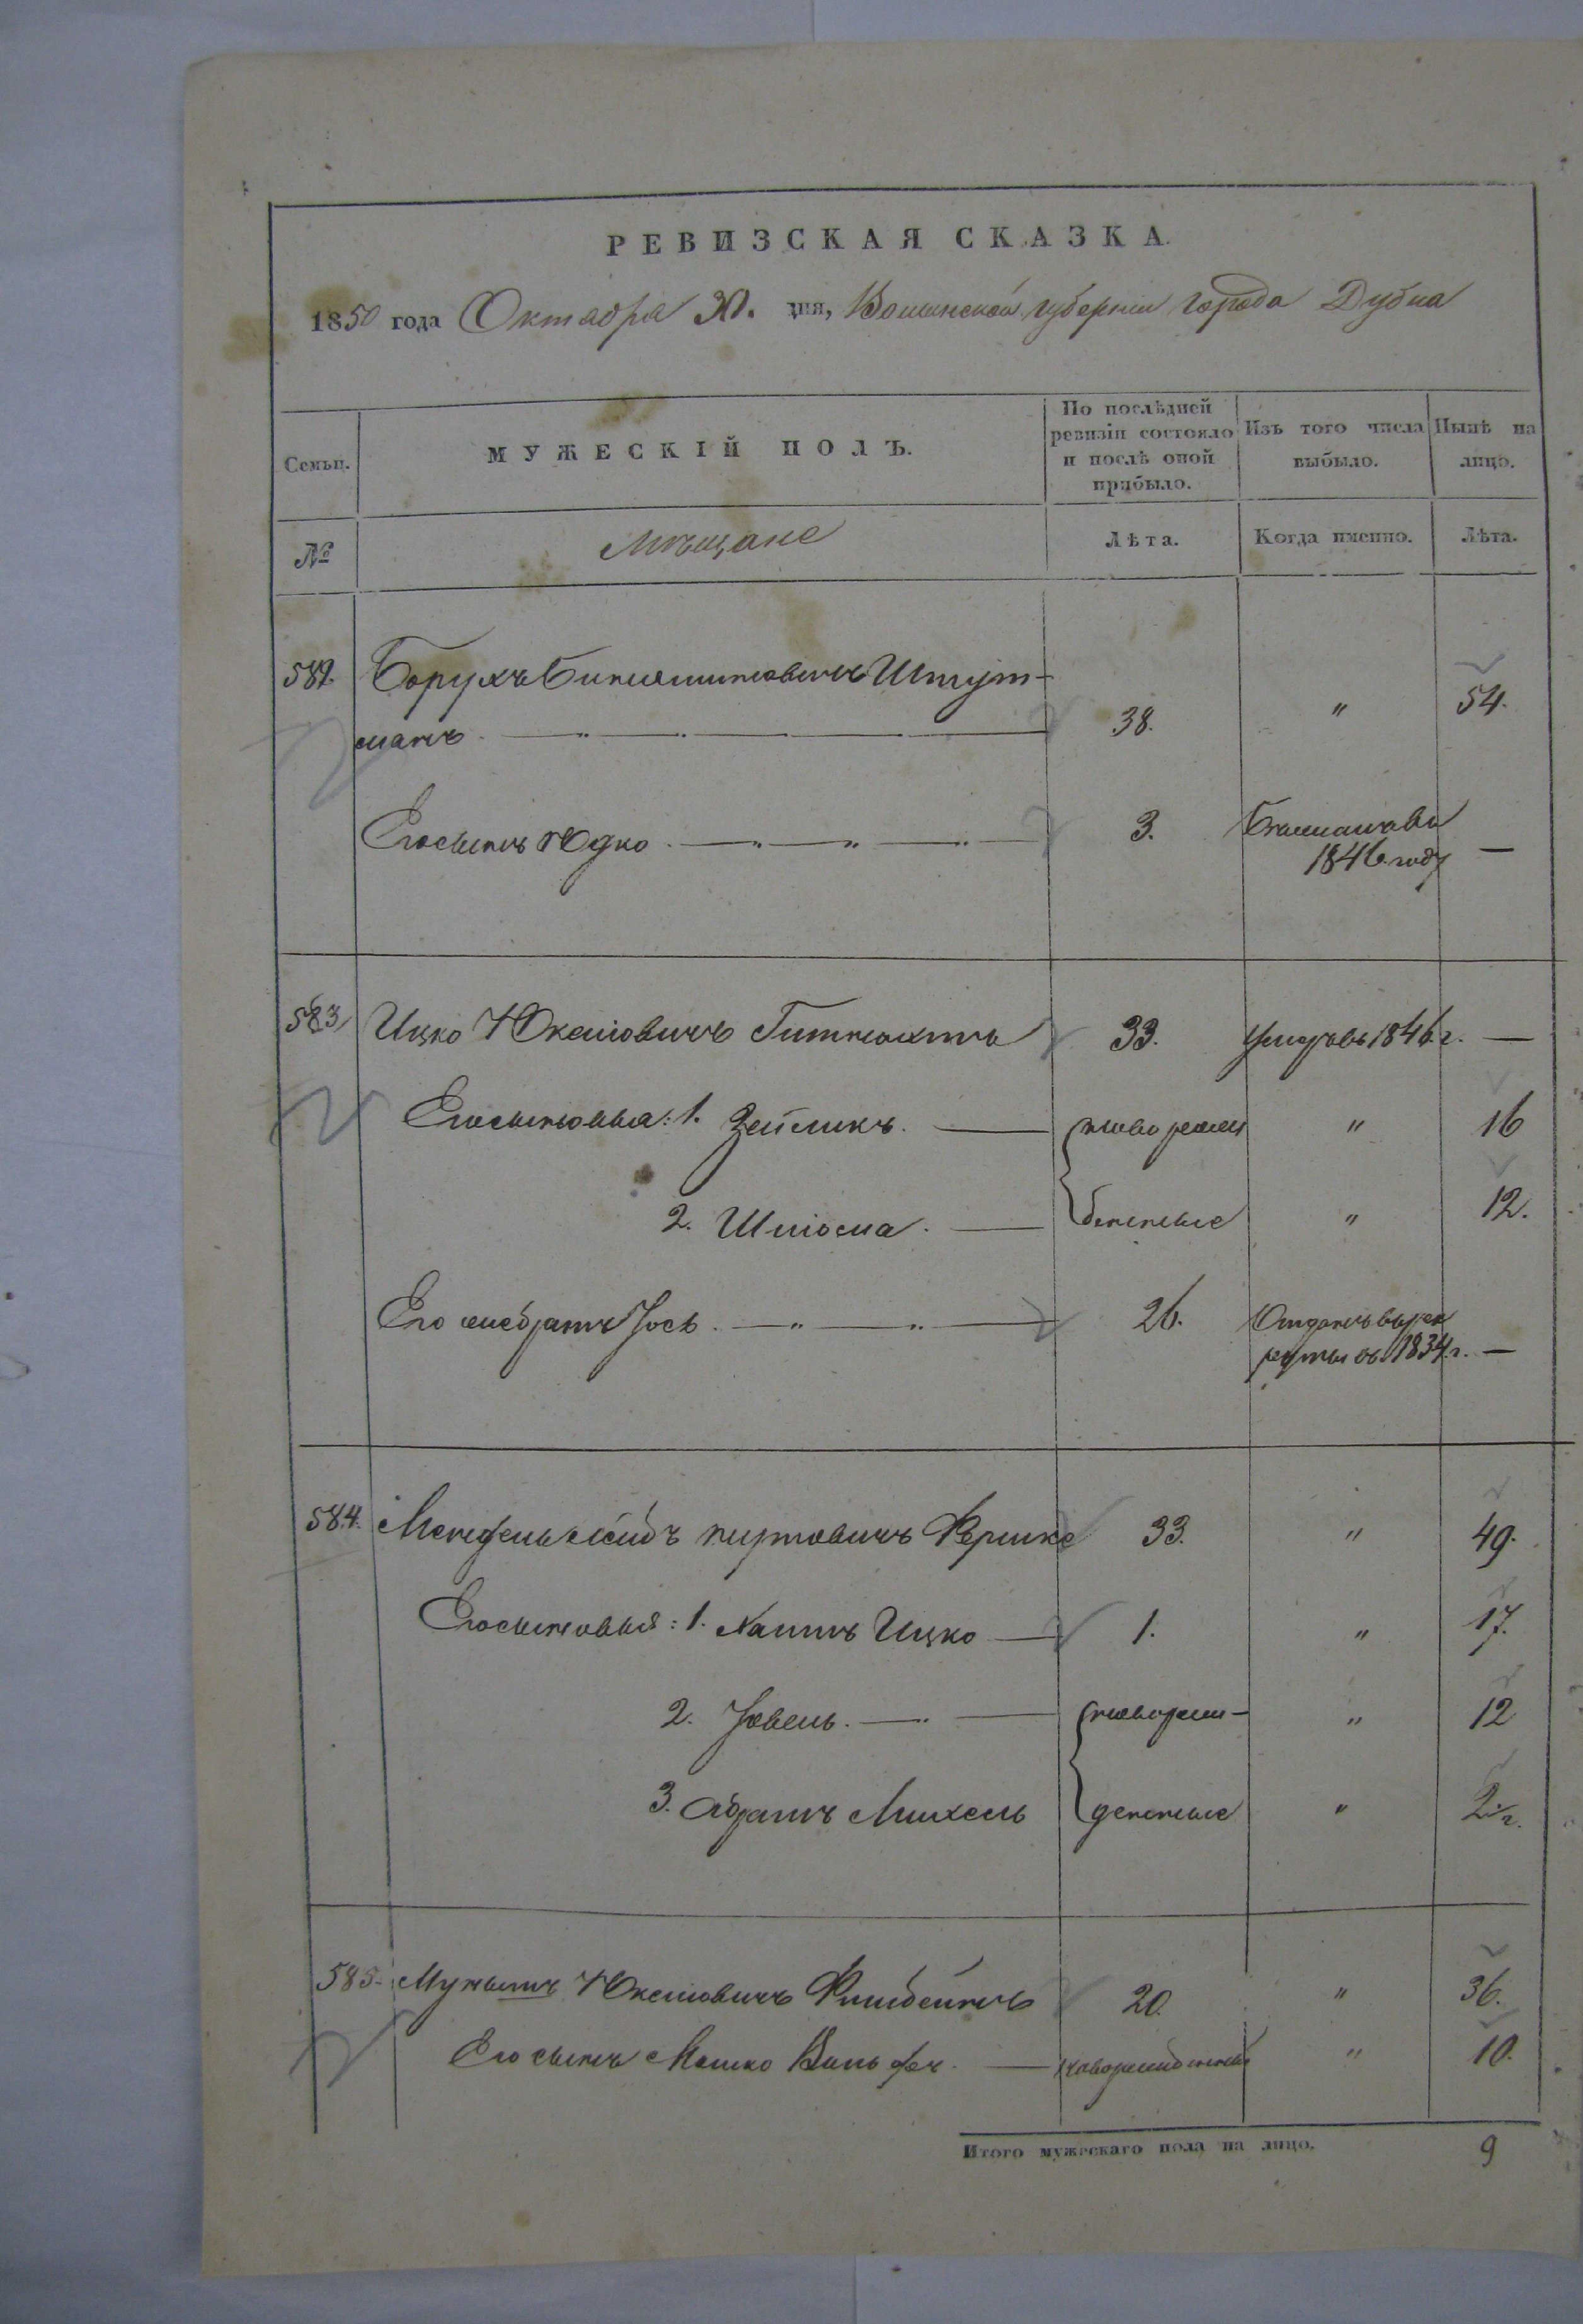 РЕВИЗСКАЯ СКАЗКА.
1850 года Октабра 30. дня, Волынской губернии города Дубна
Семьи.
МУЖЕСКІЙ ПОЛЪ.
По послѣдней ревизіи состояло и послѣ оной прибыло.
Изъ того числа выбыло.
Нынѣ на лицо.
№
Мѣщане
Лѣта.
Когда именно.
Лѣта.
Борухъ Биняминовичъ Штут-
манъ 38. " 54.
Его сынъ Юдко 3.
1846 году —
583 Ицко Юкелiовичъ 33. умеръ въ 1846 г. —
Его сыновья: 1. Зейликъ. новорож " 16
2. Шлiома. денные " 12.
Его же братъ Iось 26. Отданъ въ рек
руты въ 1834 г. —
584. Мендель Лейбъ 33. " 49.
Его сыновья: 1. Хаимъ Ицко 1. " 17.
2. новорож- " 12
3. Абрамъ Михель денные " 2
585. Юкелiовичъ 20. " 36.
Его сынъ Мошко Вольфъ. новорожденный " 10.
Итого мужескаго пола на лицо. 9